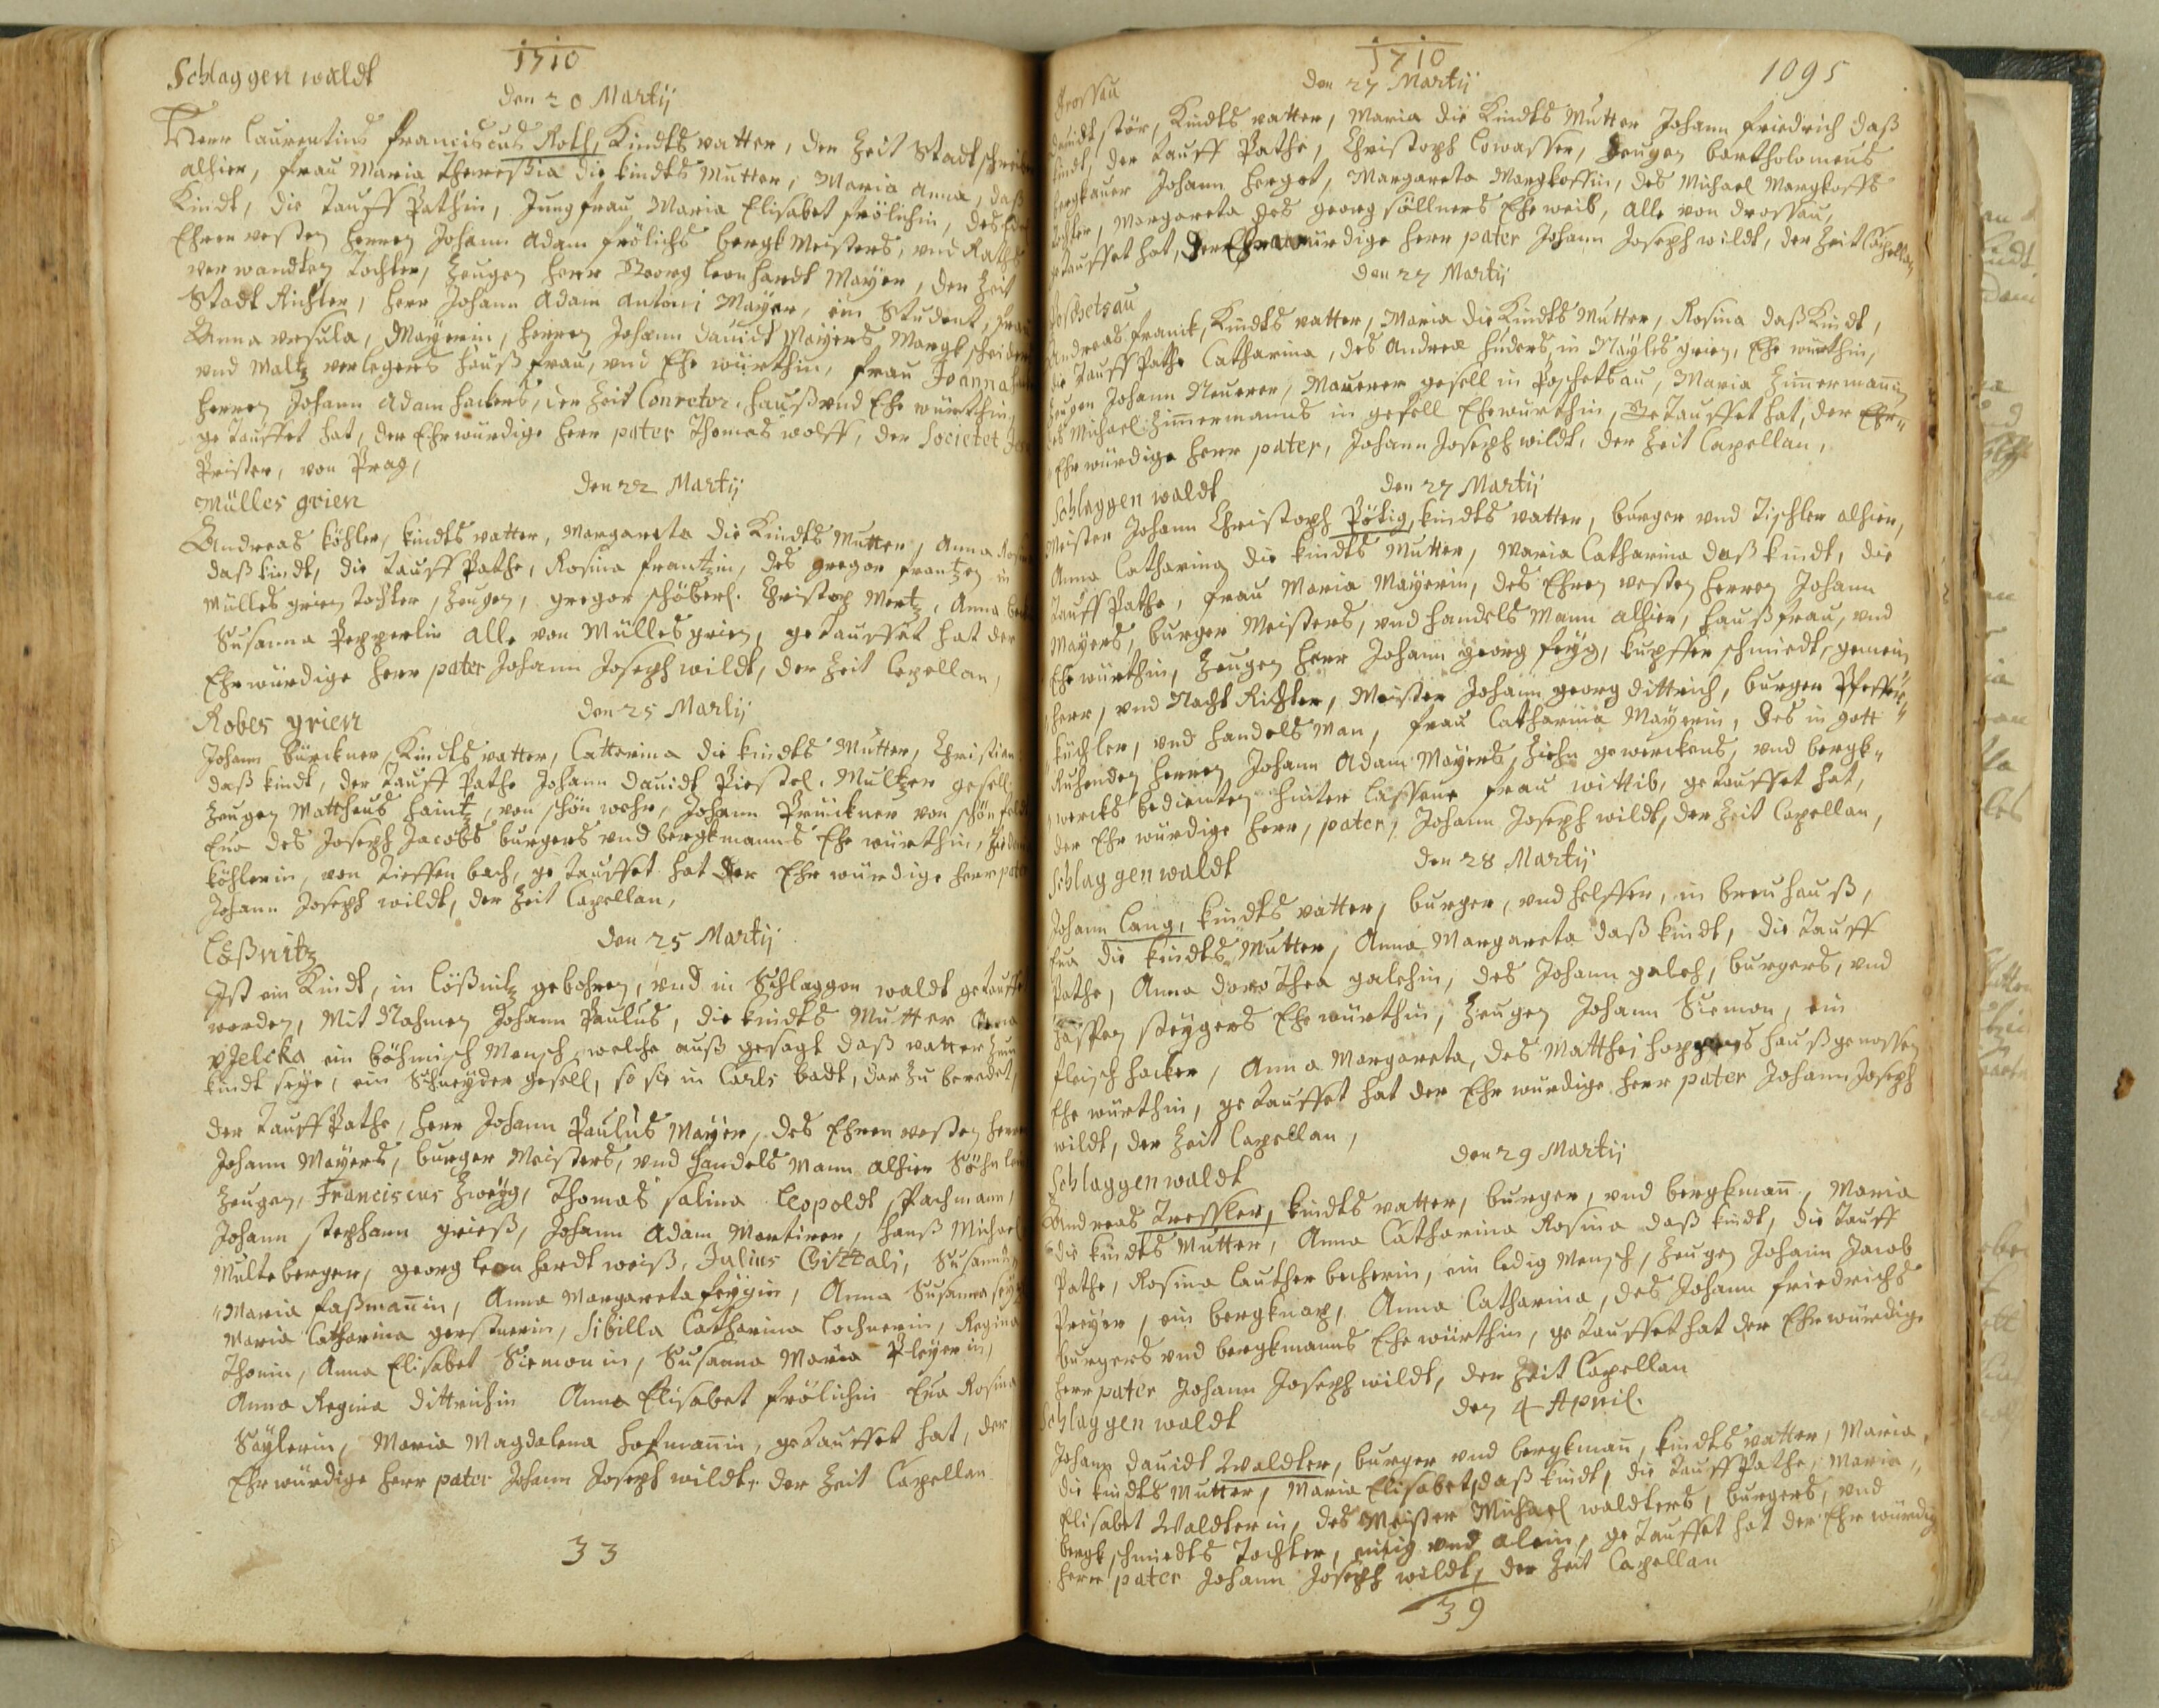 1710
Schlaggen waldt
den 20 Martij
Herr Laurentius Franciscus Roth, Kindts vatter, der Zeit Stadtschreiber
alhier, frau Maria Theressia die kindts Mutter, Maria Anna, daß
Kindt, die Tauff Pathin, Jungfrau Maria Elisabet frölichin, des
Ehren vesten herren Johann Adam frölichs bergk Meisters, vnd Raths
ver wandten Tochter, Zeugen herr Georg leonhardt Mayer, der Zeit
Stadt Richter, herr Johann Adam Antoni Mayer, ein Student, frau
Anna vrsula, Mayerin, herren Johann dauidt Mayers, Margk scheiders
vnd Maltz verlegers hauß frau, vnd Ehe würthin, frau Joanna
herren Johann Adam hackers, der Zeit Conretor, hauß vnd Ehe würthin,
ge tauffet hat, der Ehrwürdige herr pater Thomas wolff, der Societet
Prister, von Prag,
Mülles grien
den 22 Martij
Andreas köhler, kindts vatter, Margareta die Kindts Mutter, Anna
daß kindt, die tauff Pathe, Rosina frantzin, des gregor frantzen in
Mülles grien tochter, Zeugen, gregor schöberl. Christop Mertz, Anna
Susanna Pepperlin alle von Mülles grien, getauffet hat der
Ehrwürdige herr pater Johann Joseph wildt, der Zeit Capellan,
Robes grien
den 25 Martij
Johann bürckner, Kindts vatter, Catterina die kindts Mutter, Christian
daß kindt, der tauff Pathe Johann dauidt Piestel. Mültzer gesell,
Zeugen Mattheus haintz, von schön wehr, Johann Prückner von schön feldt
Eua des Joseph Jacobs burgers vnd bergkmanns Ehe würthin,
köhlerin, von tieffen bach, ge tauffet hat der Ehr würdige herr pater
Johann Joseph wildt, der Zeit Capellan,
Lößnitz
den 25 Martij
Ist ein Kindt, in lößnitz gebohren, vnd in Schlaggen waldt getaufft
worden, Mit Nahmen Johann Paulus, die kindts Mutter Anna
vJelcka ein böhmisch Mensch, welche auß gesagt daß vatter Zum
kindt seye, ein Schneyder gesell, so sie in Carls badt, dar Zu beredet,
der tauff Pathe, herr Johann Paulus Mayer, des Ehren vesten herren
Johann Mayers, burger Meisters, vnd handels Mann alhier Söhn lein
Zeugen, Franciscus Zweÿg, Thomas salina Leopoldt Pachmann,
Johann stephann grieß, Johann Adam Martiner, hanß Michael
Multeberger, georg leonhardt weiß, Julius Cittali, Susanna
Maria faßmañin, Anna Margareta feygin, Anna Susanna
Maria Catharina gerstnerin, Sibilla Catharina Lochnerin, Regina
Thomin, Anna Elisabet Siemonin, Susanna Maria Pleyerin,
Anna Regina dittrichin Anna Elisabet frölichin Eua Rosina
Säylerin, Maria Magdalena hofmañin, getauffet hat, der
Ehrwürdige herr pater Johann Joseph wildt, der Zeit Capellan
33
1710
1095
Drossau
den 27 Martij
stör, Kindts vatter, Maria die Kindts Mutter Johann friedrich daß
kindt, der tauff Pathe, Christoph lowasser, Zeugen bartholomeus
bergkauer Johann herget, Margareta Margkoffin, des Michael Margkoffs
tochter, Margareta des georg söllners Ehe weib, alle von drossau,
getauffet hat, der Ehrwürdige herr pater Johann Joseph wildt, der Zeit Capellan
den 27 Martij
Poschetzau
Andreas franck, Kindts vatter, Maria die Kindts Mutter, Rosina daß Kindt,
die tauff Pathe Catharina, des Andrea huders, in Nayles grien, Ehe würthin,
Zeugen Johann Neuerer, Mauerer gesell in Poschetzau, Maria Zimmermañin
des Michael Zimmermanns in gesell Ehewürthin, Getauffet hat, der Ehr-
Ehr würdige herr pater, Johann Joseph wildt, der Zeit Capellan,
Schlaggen waldt
den 27 Martij
Meister Johann Christoph Pötig, kindts vatter, burger vnd Tischler alhier,
Anna Catharina die kindts Mutter, Maria Catharina daß kindt, die
tauff Pathe, frau Maria Mayerin, des Ehren vesten herren Johann
Mayers, burger Meisters, vnd handels Mann alhier, hauß frau, vnd
Ehe würthin, Zeugen herr Johann georg feyg, kupffer schmiedt, gemein
herr, vnd Nacht Richter, Meister Johann georg dittrich, burger Pfeffer-
küchler, vnd handels Man, frau Catharina Mayerin, des in gott
Ruhenden herren Johann Adam Mayers, Ziehn gewerckens, vnd bergk-
wercks bedienten hinter lassene frau wittib, getauffet hat,
der Ehr würdige herr, pater, Johann Joseph wildt, der Zeit Capellan,
Schlaggen waldt
den 28 Martij
Johann Lang, kindts vatter, burger, vnd helffer, in breuhauß,
Eua die kindts Mutter, Anna Margareta daß kindt, die tauff
Pathe, Anna dorothea galchin, des Johann galch, burgers, vnd
steygers Ehe würthin, Zeugen Johann Siemon, ein
fleisch hacker, Anna Margareta, des Matthei hauß genossen
Ehe würthin, getauffet hat der Ehr würdige herr pater Johann Joseph
wildt, der Zeit Capellan,
Schlaggenwaldt
den 29 Martij
Andreas Tressler, kindts vatter, burger, vnd bergkmañ, Maria
die kindts Mutter, Anna Catharina Rosina daß kindt, die tauff
Pathe, Rosina lauther becherin, ein ledig Mensch, Zeugen Johann Jacob
Preyer, ein bergknap, Anna Catharina, des Johann friedrichs
burgers vnd bergkmanns Ehe würthin, getauffet hat der Ehrwürdige
herr pater Johann Joseph wildt, der Zeit Capellan
Schlaggen waldt
den 4 April.
Johann dauidt Waldter, burger vnd bergkmañ, kindts vatter, Maria
die kindts Mutter, Maria Elisabet, daß kindt, die tauff Pathe, Maria
Elisabet Waldterin, des Meister Michael waldters, burgers, vnd
bergk schmiedts Tochter, einig vnd alein, getauffet hat der Ehr würdig
herr pater Johann Joseph wildt, der Zeit Capellan
39